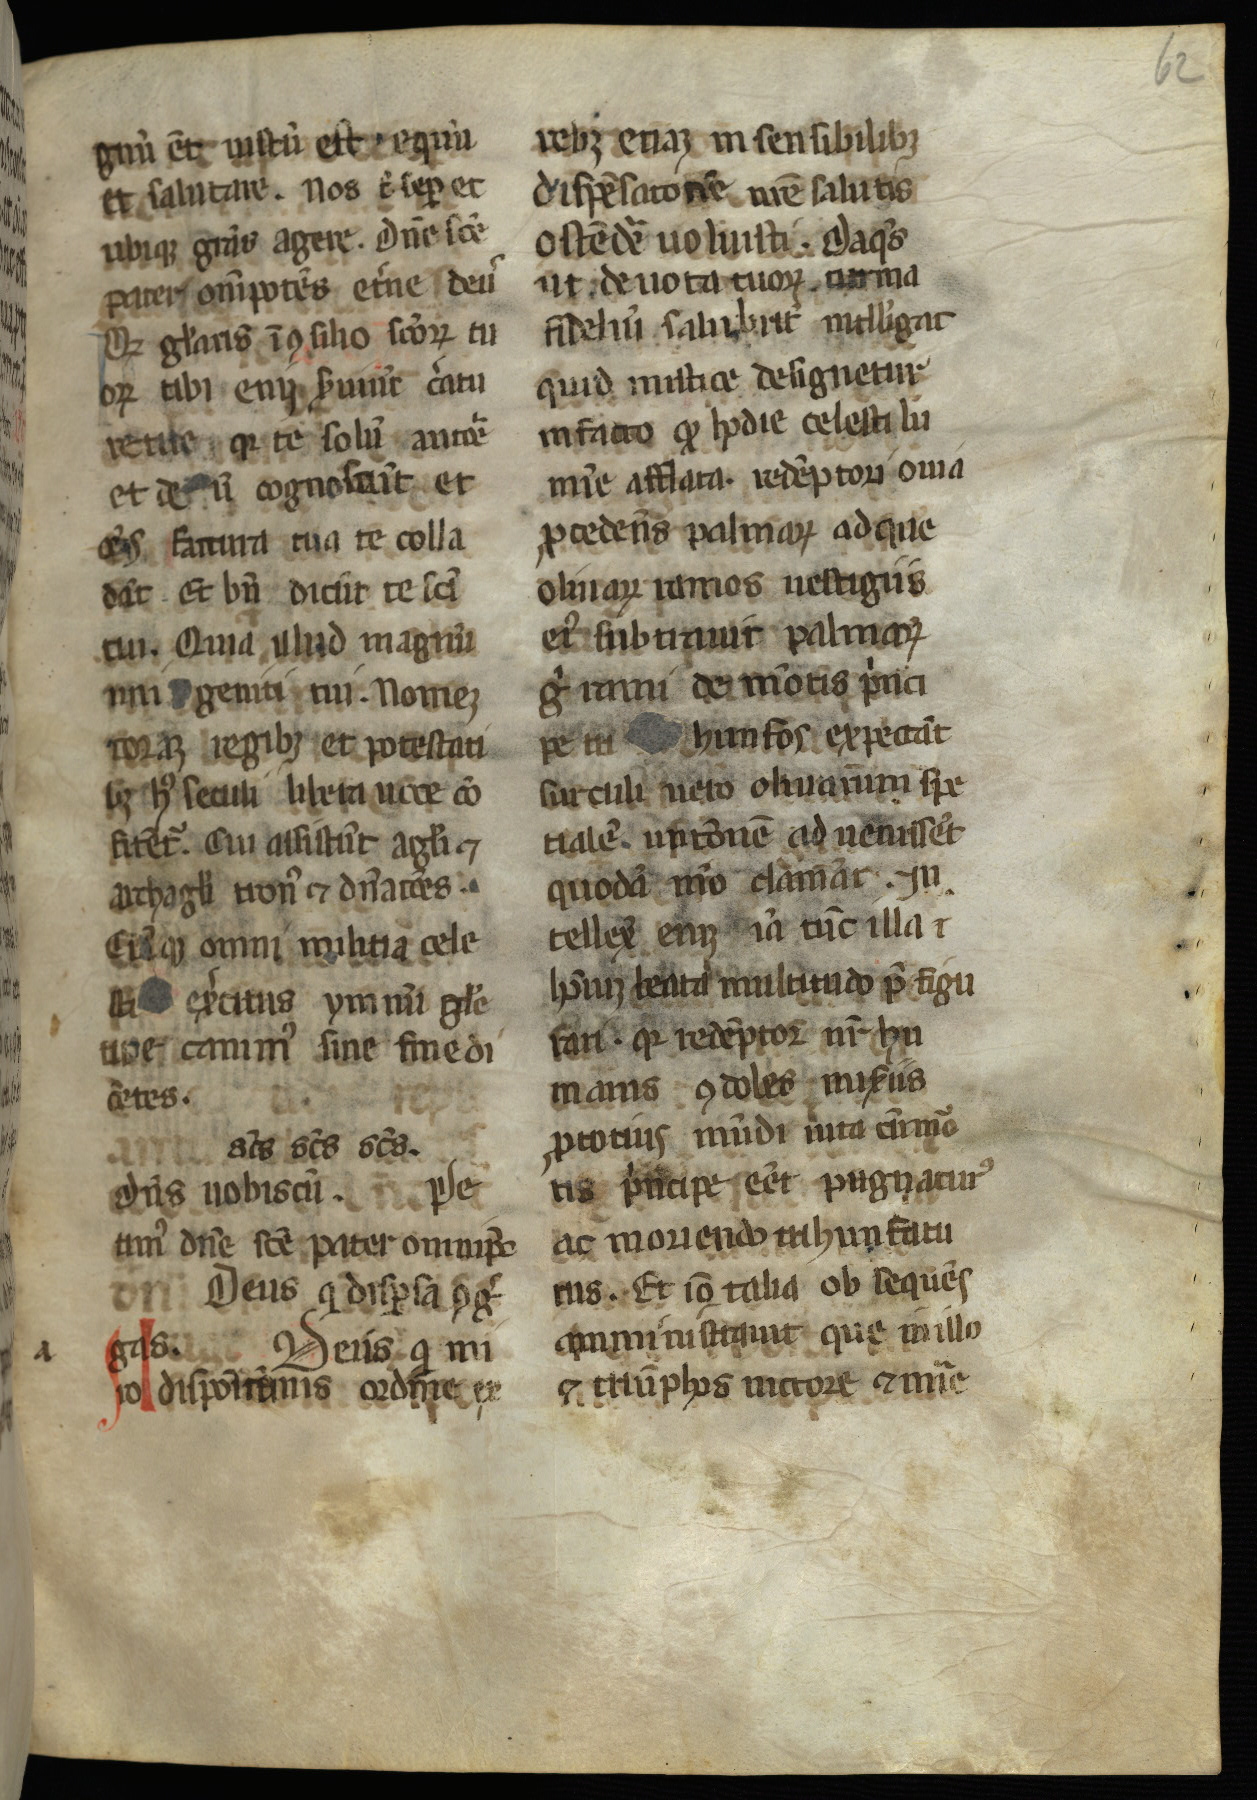 62
gnū et iustū est equū
et salutare. Nos t sep et
ubiqꝫ grās agere. Dn̄e sc̄e
pater om̄ipotēs et̄ne deus
Qꝛ gl̄aris ī ꝯsilio sc̄oꝝ tu
oꝝ tibi eniꝫ s̄uiūt c̄atu
re tue qꝛ te solū auctē
et de ū cognoscūt et
oēs factura tua te colla
dāt Et bn̄ dicūt te sc̄i
tui. Quia illud magnū
uni geniti tui. Nomeꝫ
coraꝫ regibꝫ et potestati
bꝫ hꝰ seculi libera uoce cō
fitēt̃. Cui assistūt agl̄i ⁊
archagl̄i tron̄ ⁊ dn̄atōes.
Cūqꝫ omni militia cele
sti ex̄citus ymnū gl̄e
tue canimꝰ sine fine di
cētes.
sc̄s sc̄s sc̄s.
Dn̄s uobiscū. Pe
timꝰ dn̄e sc̄e pater omnip̄c
Deus q disꝑsa ꝯḡ
gas. Deus q mi
a
ro dispositiōnis ordine ex
rebꝫ etiaꝫ in sensibilibꝫ
dispēsatōnē nr̄e salutis
ostēdē uoluisti. Daq̄s
ut deuota tuoꝝ turma
fideliū salubrit̄ intell̄igat
quid mistice designetur
in facto qꝫ hodie celesti lu
mīe afflata. redēptori ouia
ꝓcedēs palmaꝝ adque
oliuaꝝ ramos uestigiis
eiꝰ subtrauit palmaꝝ
g̃ rami de mortis pⁱnci
pe tri hunfōs expectāt
surculi uero oliuarum spe
tialē. unctōnē ad uenisset
quodā mō clamāt. In
tellex̄ eniꝫ iā tūc illa ī
hoīuꝫ beata multitudo p̄ figu
rari. qꝛ redēptor nr̄ hu
manis ꝯdoles mis̄iis
ꝓ totius mūdi uita cū mo
tis pⁱncipe eēt pugnaturꝰ
ac moriendo trihunfatu
rus. Et iō talia ob sequēs
amministrauit que in illo
⁊ triūphos uictorie ⁊ mīe